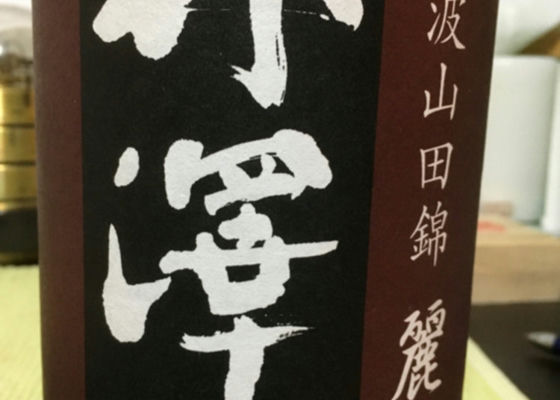 澤
波山田錦 麗